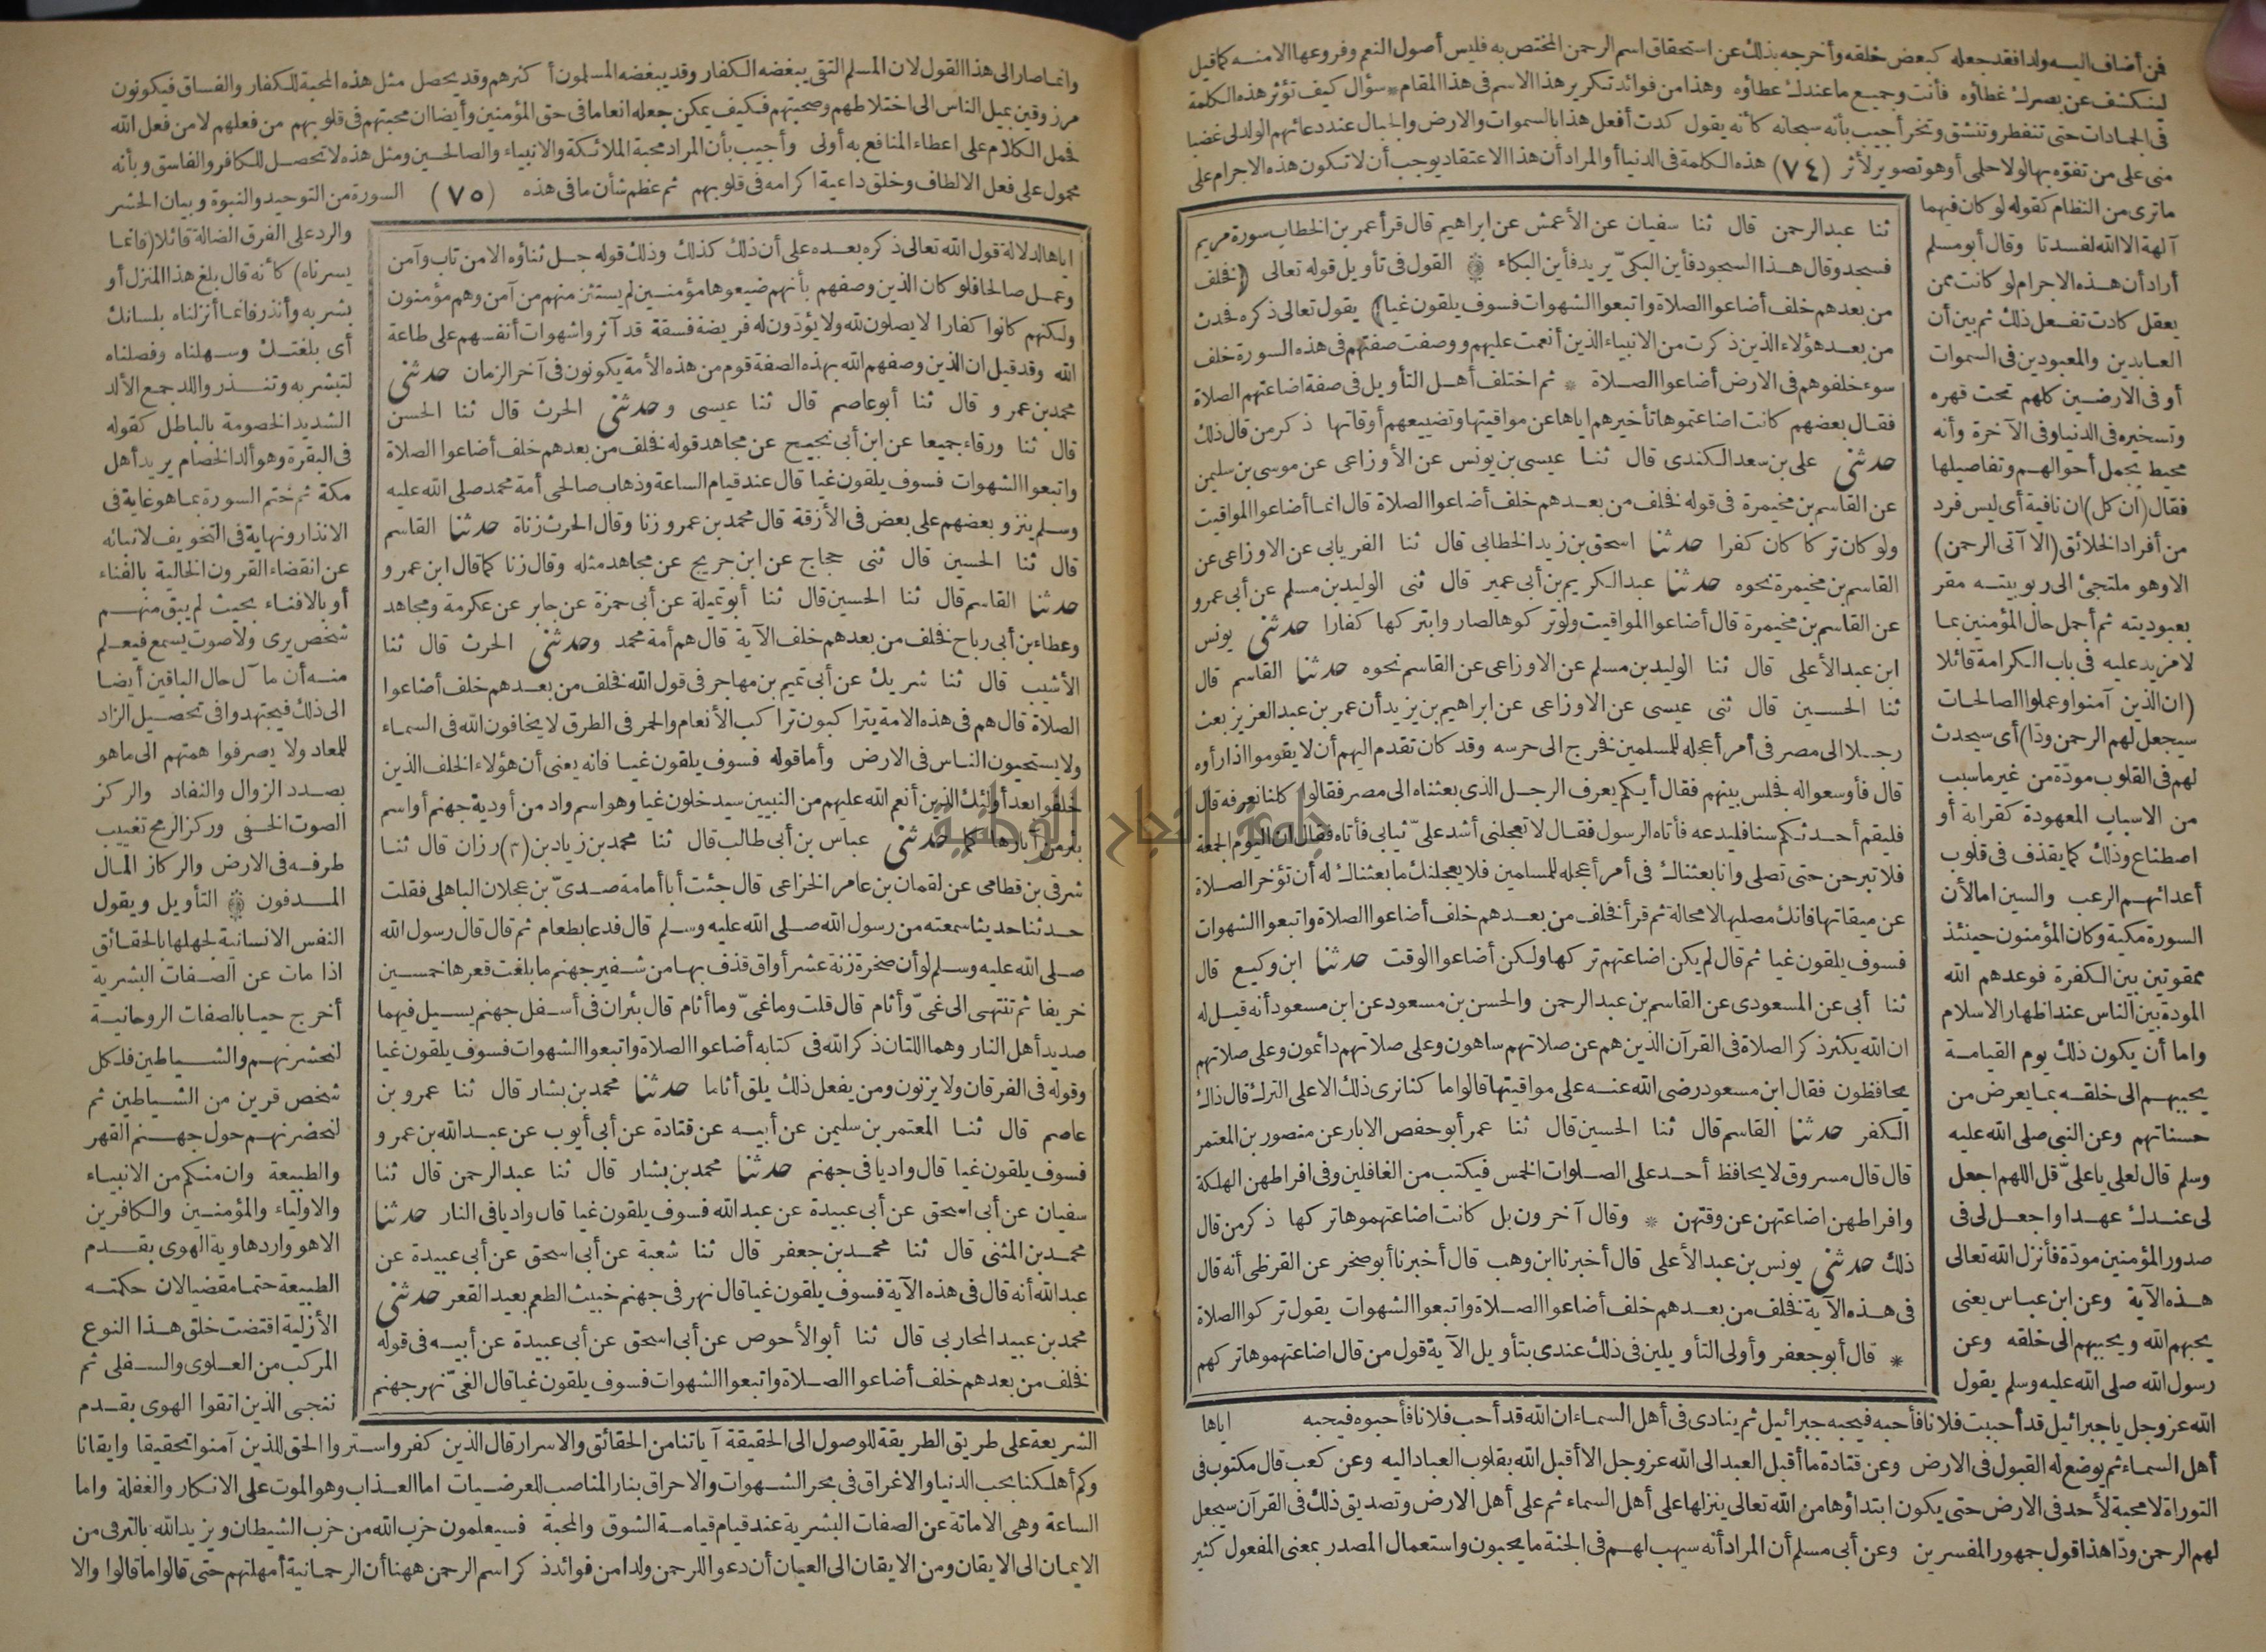 فمن أضاف اليه ولدا فقد جعله كبعض خلقه وأخرجه بذلك عن استحقاق اسم الرحمن المختص به فليس أصول النعم وفروعها الا منه كما قيل
لينكشف عن بصرك غطاؤه فأنت وجميع ما عندك عطاؤه وهذا من فوائد تكرير هذا الاسم في هذا المقام * سؤال كيف تؤثر هذه الكلمة
في الجمادات حتى تنفطر وتنشق وتخر أجيب بأنه سبحانه كأنه يقول كدت أفعل هذا بالسموات والارض والجبال عند دعائهم الولد لي غضبا
مني على من تفوّه بها لولا حلمي أو هو تصوير لأثر (٧٤) هذه الكلمة في الدنيا أو المراد أن هذا الاعتقاد يوجب أن لا تكون هذه الاجرام على
ما ترى من النظام كقوله لو كان فيهما
آلهة الا الله لفسدتا وقال أبو مسلم
أراد أن هذه الاجرام لو كانت ممن
يعقل كادت تفعل ذلك ثم بين أن
العابدين والمعبودين في السموات
أو في الارضين كلهم تحت قهره
وتسخيره في الدنيا وفي الآخرة وأنه
محيط بجمل أحوالهم وتفاصيلها
فقال (ان كل) ان نافية أي ليس فرد
من أفراد الخلائق (الا آتى الرحمن)
الا وهو ملتجئ الى ربوبيته مقر
بعبوديته ثم أجمل حال المؤمنين بما
لا مزيد عليه في باب الكرامة قائلا
(ان الذين آمنوا وعملوا الصالحات
سيجعل لهم الرحمن ودّا) أي سيحدث
لهم في القلوب مودّة من غير ما سبب
من الاسباب المعهودة كقرابة أو
اصطناع وذلك كما يقذف في قلوب
أعدائهم الرعب والسين اما لأن
السورة مكية وكان المؤمنون حينئذ
ممقوتين بين الكفرة فوعدهم الله
المودة بين الناس عند اظهار الاسلام
واما أن يكون ذلك يوم القيامة
يحببهم الى خلقه بما يعرض من
حسناتهم وعن النبي صلى الله عليه
وسلم قال لعلي يا عليّ قل اللهم اجعل
لي عندك عهدا واجعل لي في
صدور المؤمنين مودّة فأنزل الله تعالى
هذه الآية وعن ابن عباس يعني
يحبهم الله ويحببهم الى خلقه وعن
رسول الله صلى الله عليه وسلم يقول
ثنا عبد الرحمن قال ثنا سفيان عن الأعمش عن ابراهيم قال قرأ عمر بن الخطاب سورة مريم
فسجد وقال هذا السجود فأين البكيّ يريد فأين البكاء ۞ القول في تأويل قوله تعالى (فخلف
من بعدهم خلف أضاعوا الصلاة واتبعوا الشهوات فسوف يلقون غيا) يقول تعالى ذكره فحدث
من بعد هؤلاء الذين ذكرت من الانبياء الذين أنعمت عليهم ووصفت صفتهم في هذه السورة خلف
سوء خلفوهم في الارض أضاعوا الصلاة * ثم اختلف أهل التأويل في صفة اضاعتهم الصلاة
فقال بعضهم كانت اضاعتموها تأخيرهم اياها عن مواقيتها وتضييعهم أوقاتها ذكر من قال ذلك
حدثني علي بن سعد الكندي قال ثنا عيسى بن يونس عن الأوزاعي عن موسى بن سليمن
عن القاسم بن مخيمرة في قوله فخلف من بعدهم خلف أضاعوا الصلاة قال انما أضاعوا المواقيت
ولو كان تركا كان كفرا حدثنا اسحق بن زيد الخطابي قال ثنا الفريابي عن الاوزاعي عن
القاسم بن مخيمرة نحوه حدثنا عبد الكريم بن أبي عمير قال ثني الوليد بن مسلم عن أبي عمرو
عن القاسم بن مخيمرة قال أضاعوا المواقيت ولو تركوها لصاروا بتركها كفارا حدثني يونس
ابن عبد الأعلى قال ثنا الوليد بن مسلم عن الاوزاعي عن القاسم نحوه حدثنا القاسم قال
ثنا الحسين قال ثني عيسى عن الاوزاعي عن ابراهيم بن يزيد أن عمر بن عبد العزيز بعث
رجلا الى مصر في أمر أعجله للمسلمين فخرج الى حرسه وقد كان تقدم اليهم أن لا يقوموا اذا رأوه
قال فأوسعوا له فجلس بينهم فقال أيكم يعرف الرجل الذي بعثناه الى مصر فقالوا كلنا نعرفه قال
فليقم أحدثكم سنا فليدعه فأتاه الرسول فقال لا تعجلني أشد عليّ ثيابي فأتاه فقال ان اليوم الجمعة
فلا تبرحن حتى تصلي وانا بعثناك في أمر أعجله للمسلمين فلا يعجلنك ما بعثناك له أن تؤخر الصلاة
عن ميقاتها فانك مصليها لا محالة ثم قرأ فخلف من بعدهم خلف أضاعوا الصلاة واتبعوا الشهوات
فسوف يلقون غيا ثم قال لم يكن اضاعتهم تركها ولكن أضاعوا الوقت حدثنا ابن وكيع قال
ثنا أبي عن المسعودي عن القاسم بن عبد الرحمن والحسن بن مسعود عن ابن مسعود أنه قيل له
ان الله يكثر ذكر الصلاة في القرآن الذين هم عن صلاتهم ساهون وعلى صلاتهم دائمون وعلى صلاتهم
يحافظون فقال ابن مسعود رضي الله عنه على مواقيتها قالوا ما كنا نرى ذلك الا على الترك قال ذاك
الكفر حدثنا القاسم قال ثنا الحسين قال ثنا عمر أبو حفص الابار عن منصور بن المعتمر
قال قال مسروق لا يحافظ أحد على الصلوات الخمس فيكتب من الغافلين وفي افراطهن الهلكة
وافراطهن اضاعتهن عن وقتهن * وقال آخرون بل كانت اضاعتهموها تركها ذكر من قال
ذلك حدثني يونس بن عبد الأعلى قال أخبرنا ابن وهب قال أخبرنا أبو صخر عن القرظي أنه قال
في هذه الآية فخلف من بعدهم خلف أضاعوا الصلاة واتبعوا الشهوات يقول تركوا الصلاة
* قال أبو جعفر وأولى التأويلين في ذلك عندي بتأويل الآية قول من قال اضاعتهموها تركهم
اياها
الله عز وجل يا جبرائيل قد أحببت فلانا فأحبه فيحبه جبرائيل ثم ينادى في أهل السماء ان الله قد أحب فلانا فأحبوه فيحبه
أهل السماء ثم يوضع له القبول في الارض وعن قتادة ما أقبل العبد الى الله عز وجل الا أقبل الله بقلوب العباد اليه وعن كعب قال مكتوب في
التوراة لا محبة لأحد في الارض حتى يكون ابتداؤها من الله تعالى ينزلها على أهل السماء ثم على أهل الارض وتصديق ذلك في القرآن سيجعل
لهم الرحمن ودّا هذا قول جمهور المفسرين وعن أبي مسلم أن المراد أنه سيهب لهم في الجنة ما يحبون واستعمال المصدر بمعنى المفعول كثير
وانما صار الى هذا القول لان المسلم التقي يبغضه الكفار وقد يبغضه المسلمون أكثرهم وقد يحصل مثل هذه المحبة للكفار والفساق فيكونون
مرزوقين بميل الناس الى اختلاطهم وصحبتهم فكيف يمكن جعله انعاما في حق المؤمنين وأيضا ان محبتهم في قلوبهم من فعلهم لا من فعل الله
فحمل الكلام على اعطاء المنافع به أولى وأجيب بأن المراد محبة الملائكة والانبياء والصالحين ومثل هذه لا تحصل للكافر والفاسق وبأنه
محمول على فعل الالطاف وخلق داعية اكرامه في قلوبهم ثم عظم شأن ما في هذه (٧٥) السورة من التوحيد والنبوة وبيان الحشر
والرد على الفرق الضالة قائلا (فانما
يسرناه) كأنه قال بلغ هذا المنزل أو
بشر به وأنذر فانما أنزلناه بلسانك
أي بلغتك وسهلناه وفصلناه
لتبشر به وتنذر واللد جمع الألد
الشديد الخصومة بالباطل كقوله
في البقرة وهو ألد الخصام يريد أهل
مكة ثم ختم السورة بما هو غاية في
الانذار ونهاية في التخويف لانبائه
عن انقضاء القرون الخالية بالفناء
أو بالافناء بحيث لم يبق منهم
شخص يرى ولا صوت يسمع فيعلم
منه أن مآل حال الباقين أيضا
الى ذلك فيجتهدوا في تحصيل الزاد
للمعاد ولا يصرفوا همتهم الى ما هو
بصدد الزوال والنفاد والركز
الصوت الخفي وركز الرمح تغييب
طرفه في الارض والركاز المال
المدفون ۞ التأويل ويقول
النفس الانسانية لجهلها بالحقائق
اذا مات عن الصفات البشرية
أخرج حيا بالصفات الروحانية
لنحشرنهم والشياطين فلكل
شخص قرين من الشياطين ثم
لنحضرنهم حول جهنم القهر
والطبيعة وان منكم من الانبياء
والاولياء والمؤمنين والكافرين
الا هو واردها وية الهوى بقدم
الطبيعة حتما مقضيا لان حكمته
الأزلية اقتضت خلق هذا النوع
المركب من العلوي والسفلي ثم
ننجي الذين اتقوا الهوى بقدم
اياها الدلالة قول الله تعالى ذكره بعده على أن ذلك كذلك وذلك قوله جل ثناؤه الا من تاب وآمن
وعمل صالحا فلو كان الذين وصفهم بأنهم ضيعوها مؤمنين لم يستثن منهم من آمن وهم مؤمنون
ولكنهم كانوا كفارا لا يصلون لله ولا يؤدّون له فريضة فسقة قد آثروا شهوات أنفسهم على طاعة
الله وقد قيل ان الذين وصفهم الله بهذه الصفة قوم من هذه الأمة يكونون في آخر الزمان حدثني
محمد بن عمرو قال ثنا أبو عاصم قال ثنا عيسى وحدثني الحرث قال ثنا الحسن
قال ثنا ورقاء جميعا عن ابن أبي نجيح عن مجاهد قوله فخلف من بعدهم خلف أضاعوا الصلاة
واتبعوا الشهوات فسوف يلقون غيا قال عند قيام الساعة وذهاب صالحي أمة محمد صلى الله عليه
وسلم ينزو بعضهم على بعض في الأزقة قال محمد بن عمرو زنا وقال الحرث زناة حدثنا القاسم
قال ثنا الحسين قال ثني حجاج عن ابن جريج عن مجاهد مثله وقال زنا كما قال ابن عمرو
حدثنا القاسم قال ثنا الحسين قال ثنا أبو تميلة عن أبي حمزة عن جابر عن عكرمة ومجاهد
وعطاء بن أبي رباح فخلف من بعدهم خلف الآية قال هم أمة محمد وحدثني الحرث قال ثنا
الأشيب قال ثنا شريك عن أبي تميم بن مهاجر في قول الله فخلف من بعدهم خلف أضاعوا
الصلاة قال هم في هذه الامة يتراكبون تراكب الأنعام والحمر في الطرق لا يخافون الله في السماء
ولا يستحيون الناس في الارض وأما قوله فسوف يلقون غيا فانه يعني أن هؤلاء الخلف الذين
خلفوا بعد أولئك الذين أنعم الله عليهم من النبيين سيدخلون غيا وهو اسم واد من أودية جهنم أو اسم
بئر من آبارها كما حدثني عباس بن أبي طالب قال ثنا محمد بن زياد بن (٢) رزان قال ثنا
شرقي بن قطامي عن لقمان بن عامر الخزاعي قال جئت أبا أمامة صديّ بن عجلان الباهلي فقلت
حدثنا حديثا سمعته من رسول الله صلى الله عليه وسلم قال فدعا بطعام ثم قال قال رسول الله
صلى الله عليه وسلم لو أن صخرة زنة عشر أواق قذف بها من شفير جهنم ما بلغت قعرها خمسين
خريفا ثم تنتهي الى غيّ وأثام قال قلت وما غيّ وما أثام قال بئران في أسفل جهنم يسيل فيهما
صديد أهل النار وهما اللتان ذكر الله في كتابه أضاعوا الصلاة واتبعوا الشهوات فسوف يلقون غيا
وقوله في الفرقان ولا يزنون ومن يفعل ذلك يلق أثاما حدثنا محمد بن بشار قال ثنا عمرو بن
عاصم قال ثنا المعتمر بن سليمن عن أبيه عن قتادة عن أبي أيوب عن عبد الله بن عمرو
فسوف يلقون غيا قال واديا في جهنم حدثنا محمد بن بشار قال ثنا عبد الرحمن قال ثنا
سفيان عن أبي اسحق عن أبي عبيدة عن عبد الله فسوف يلقون غيا قال واديا في النار حدثنا
محمد بن المثنى قال ثنا محمد بن جعفر قال ثنا شعبة عن أبي اسحق عن أبي عبيدة عن
عبد الله أنه قال في هذه الآية فسوف يلقون غيا قال نهر في جهنم خبيث الطعم بعيد القعر حدثني
محمد بن عبيد المحاربي قال ثنا أبو الأحوص عن أبي اسحق عن أبي عبيدة عن أبيه في قوله
فخلف من بعدهم خلف أضاعوا الصلاة واتبعوا الشهوات فسوف يلقون غيا قال الغيّ نهر جهنم
الشريعة على طريق الطريقة للوصول الى الحقيقة آياتنا من الحقائق والاسرار قال الذين كفروا ستروا الحق للذين آمنوا تحقيقا وايقانا
وكم أهلكنا بحب الدنيا والاغراق في بحر الشهوات والاحراق بنار المناصب للعرضيات اما العذاب وهو الموت على الانكار والغفلة واما
الساعة وهي الاماتة عن الصفات البشرية عند قيام قيامة الشوق والمحبة فسيعلمون حزب الله من حزب الشيطان ويزيد الله بالترقي من
الايمان الى الايقان ومن الايقان الى العيان أن دعوا للرحمن ولدا من فوائد ذكر اسم الرحمن ههنا أن الرحمانية أمهلتهم حتى قالوا ما قالوا والا
جامعة النجاح الوطنية